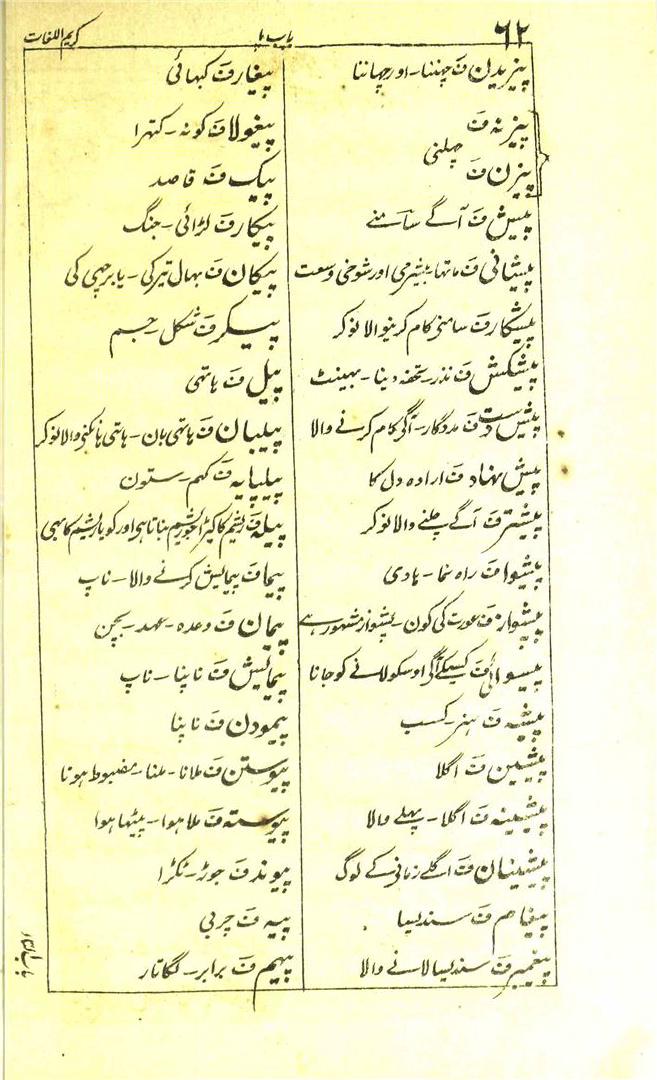 ٦٢
باب پا
کریم اللغات
پیزیدن ف چھننا۔ اور چھاننا
پیزنہ ف
پیزن ف
چھلنی
پیش ف آگے سامنے
پیشانی ف ماتھا بیشرمی اور شوخی وسعت
پیشکار ف سامنی کام کرینوالا نوکر
پیشکش ف نذر۔ تحفہ دینا۔ بھینٹ
پیش دست ف مددگار۔ آگی کام کرنے والا
پیش نہاد ف ارادہ دل کا
پیشتر ف آگے چلنے والا نوکر
پیشوا ف راہ نما۔ ہادی
پیشواز ف عورت کی گون۔ پشواز مشہور ہے
پیشوائی ف کسیکے آگی اوسکو لانے کو جانا
پیشہ ف ہنر۔ کسب
پیشین ف اگلا
پیشینہ ف اگلا۔ پہلے والا
پیشینان ف اگلے زمانی کے لوگ
پیغام ف سندیسا
پیغمبر ف سندیسا لانے والا
پیغار ف
پیغولا ف کونہ۔ کترا
پیک ف قاصد
پیکار ف لڑائی۔ جنگ
پیکان ف بھال تیر کی۔ یا برچھی کی
پیکر ف شکل۔ جسم
پیل ف ہاتھی
پیلبان ف ہاتھی بان۔ ہاتی ہانکنی والا نوکر
پیلپایہ ف کھم۔ ستون
پیلہ ف ریشم کا کیڑا جو ریشم بناتا ہی اور کویا ریشم کا بھی
پیما ف پیمایش کرنے والا۔ ناپ
پیمان ف وعدہ۔ عہد۔ بچن
پیمائیش ف ناپنا۔ ناپ
پیمودن ف ناپنا
پیوستن ف ملانا۔ ملنا۔ مضبوط ہونا
پیوستہ ف ملا ہوا۔ بیٹھا ہوا
پیوند ف جوڑ۔ ٹکڑا
پیہ ف چربی
پیہم ف برابر۔ لگاتار
باب التاء